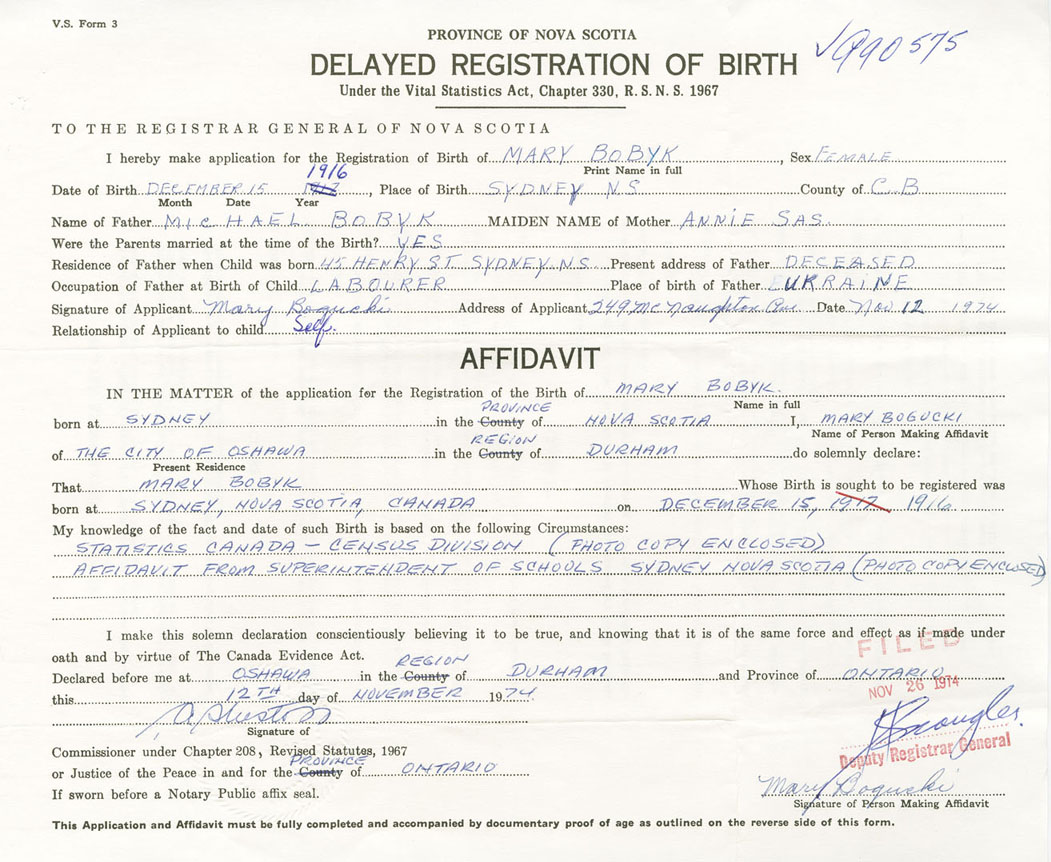 V.S. Form 3
PROVINCE OF NOVA SCOTIA
√ 990575
DELAYED REGISTRATION OF BIRTH
Under the Vital Statistics Act, Chapter 330, R.S.N.S. 1967
TO THE REGISTRAR GENERAL OF NOVA SCOTIA
I hereby make application for the Registration of Birth of MARY BOBYK, Sex FEMALE
Print Name in full
1916
Date of Birth DECEMBER 15 1917, Place of Birth SYDNEY NS County of C.B
Month Date Year
Name of Father MICHAEL BOBYK MAIDEN NAME of Mother ANNIE SAS.
Were the Parents married at the time of the Birth? YES
Residence of Father when Child was born 45 HENRY ST SYDNEY N.S. Present address of Father DECEASED
Occupation of Father at Birth of Child LABOURER Place of birth of Father UKRAINE
Signature of Applicant Mary Boguski Address of Applicant 249 McNaughton Ave Date Nov 12 1974
Relationship of Applicant to child Self.
AFFIDAVIT
IN THE MATTER of the application for the Registration of the Birth of MARY BOBYK.
Name in full
PROVINCE
born at SYDNEY in the County of NOVA SCOTIA I, MARY BOGUCKI
Name of Person Making Affidavit
REGION
of THE CITY OF OSHAWA in the County of DURHAM do solemnly declare:
Present Residence
That MARY BOBYK Whose Birth is sought to be registered was
born at SYDNEY, NOVA SCOTIA, CANADA on DECEMBER 15, 1917 1916
My knowledge of the fact and date of such Birth is based on the following Circumstances:
STATISTICS CANADA - CENSUS DIVISION (PHOTO COPY ENCLOSED)
AFFIDAVIT FROM SUPERINTENDENT OF SCHOOLS SYDNEY NOVA SCOTIA (PHOTO COPY ENCLOSED)
I make this solemn declaration conscientiously believing it to be true, and knowing that it is of the same force and effect as if made under
FILED
oath and by virtue of The Canada Evidence Act.
REGION
Declared before me at OSHAWA in the County of DURHAM and Province of ONTARIO
NOV 26 1974
this 12TH day of NOVEMBER 1974
Signature of
Commissioner under Chapter 208, Revised Statutes, 1967
Deputy Registrar General
PROVINCE
or Justice of the Peace in and for the County of ONTARIO
Mary Boguski
If sworn before a Notary Public affix seal.
Signature of Person Making Affidavit
This Application and Affidavit must be fully completed and accompanied by documentary proof of age as outlined on the reverse side of this form.